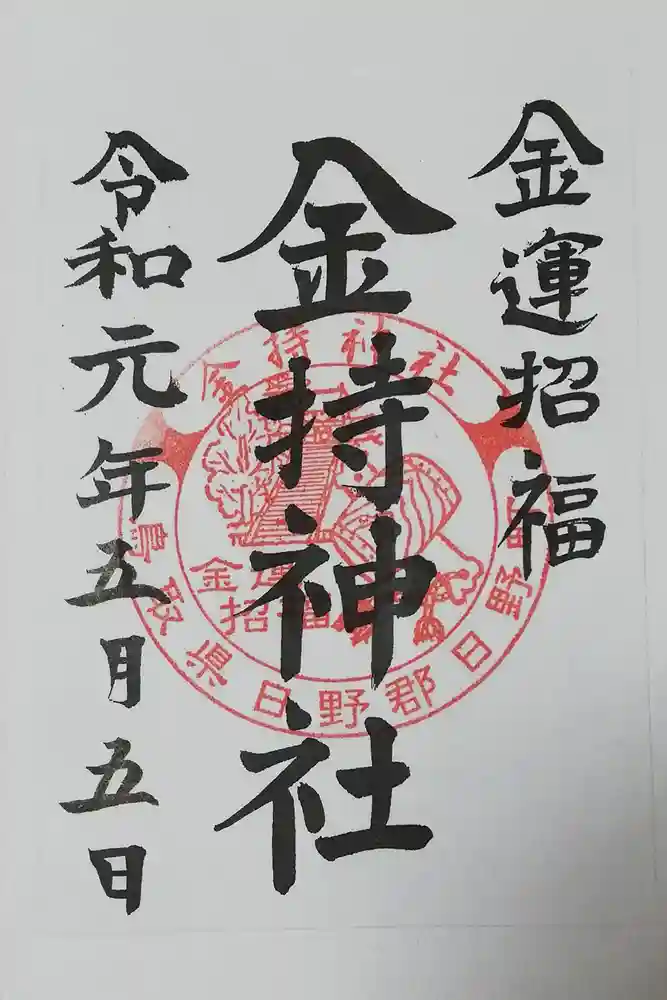 金運招福
金持神社
令和元年五月五日
金持神社
金運
招福
鳥取県日野郡日野町